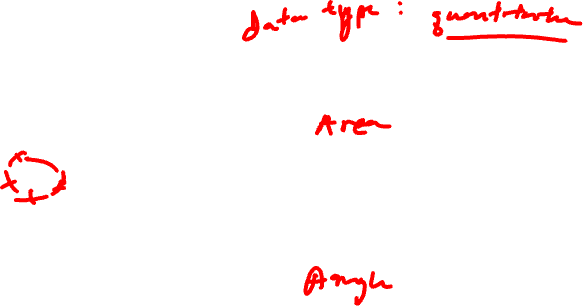 data type : quantitative
Area
Angle